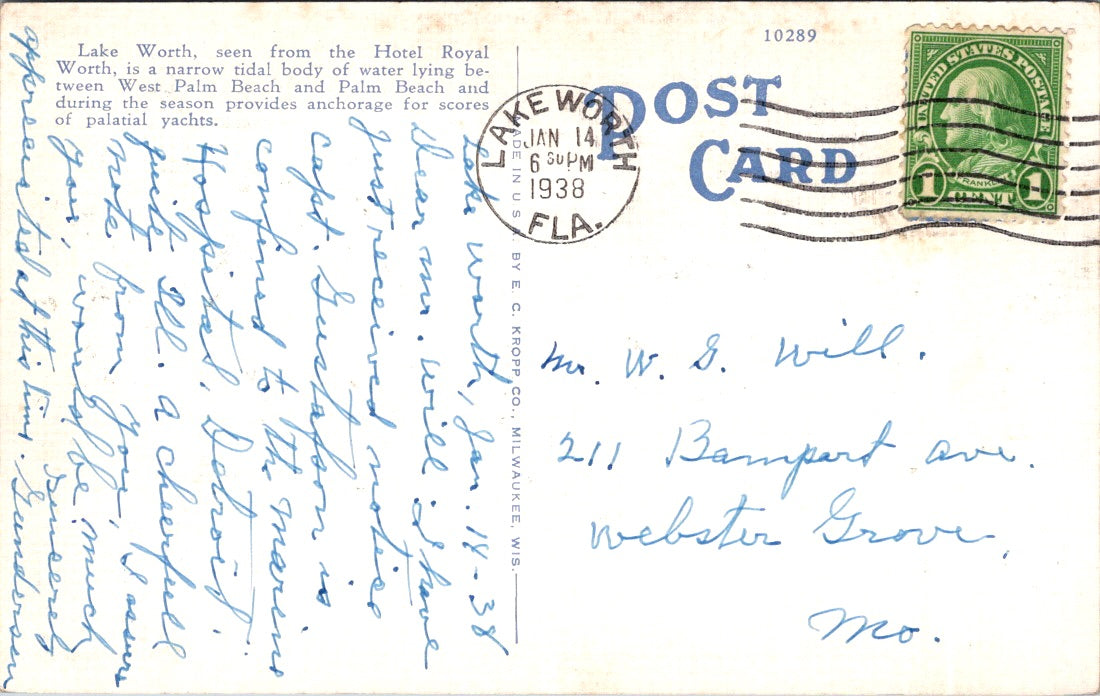 10289
Lake Worth, seen from the Hotel Royal
Worth, is a narrow tidal body of water lying be-
tween West Palm Beach and Palm Beach and
during the season provides anchorage for scores
of palatial yachts.
POST
CARD
LAKE WORTH
JAN 14
6 30 PM
1938
FLA.
UNITED STATES POSTAGE
FRANKLIN
1 CENT 1
MADE IN U.S. BY E. C. KROPP CO., MILWAUKEE, WIS.
Lake Worth, Jan. 14-38
Dear Mr. Will I have
Just received notice
Capt. Gustafson is
confined to the Marine
Hospital, Detroit.
quite Ill. A cheerfull
note from You,
would be much
appreciated at this time. I assure
you,
Sincerely
Gunderson
Mr. W. G. Will.
211 Bompart Ave.
Webster Grove,
Mo.